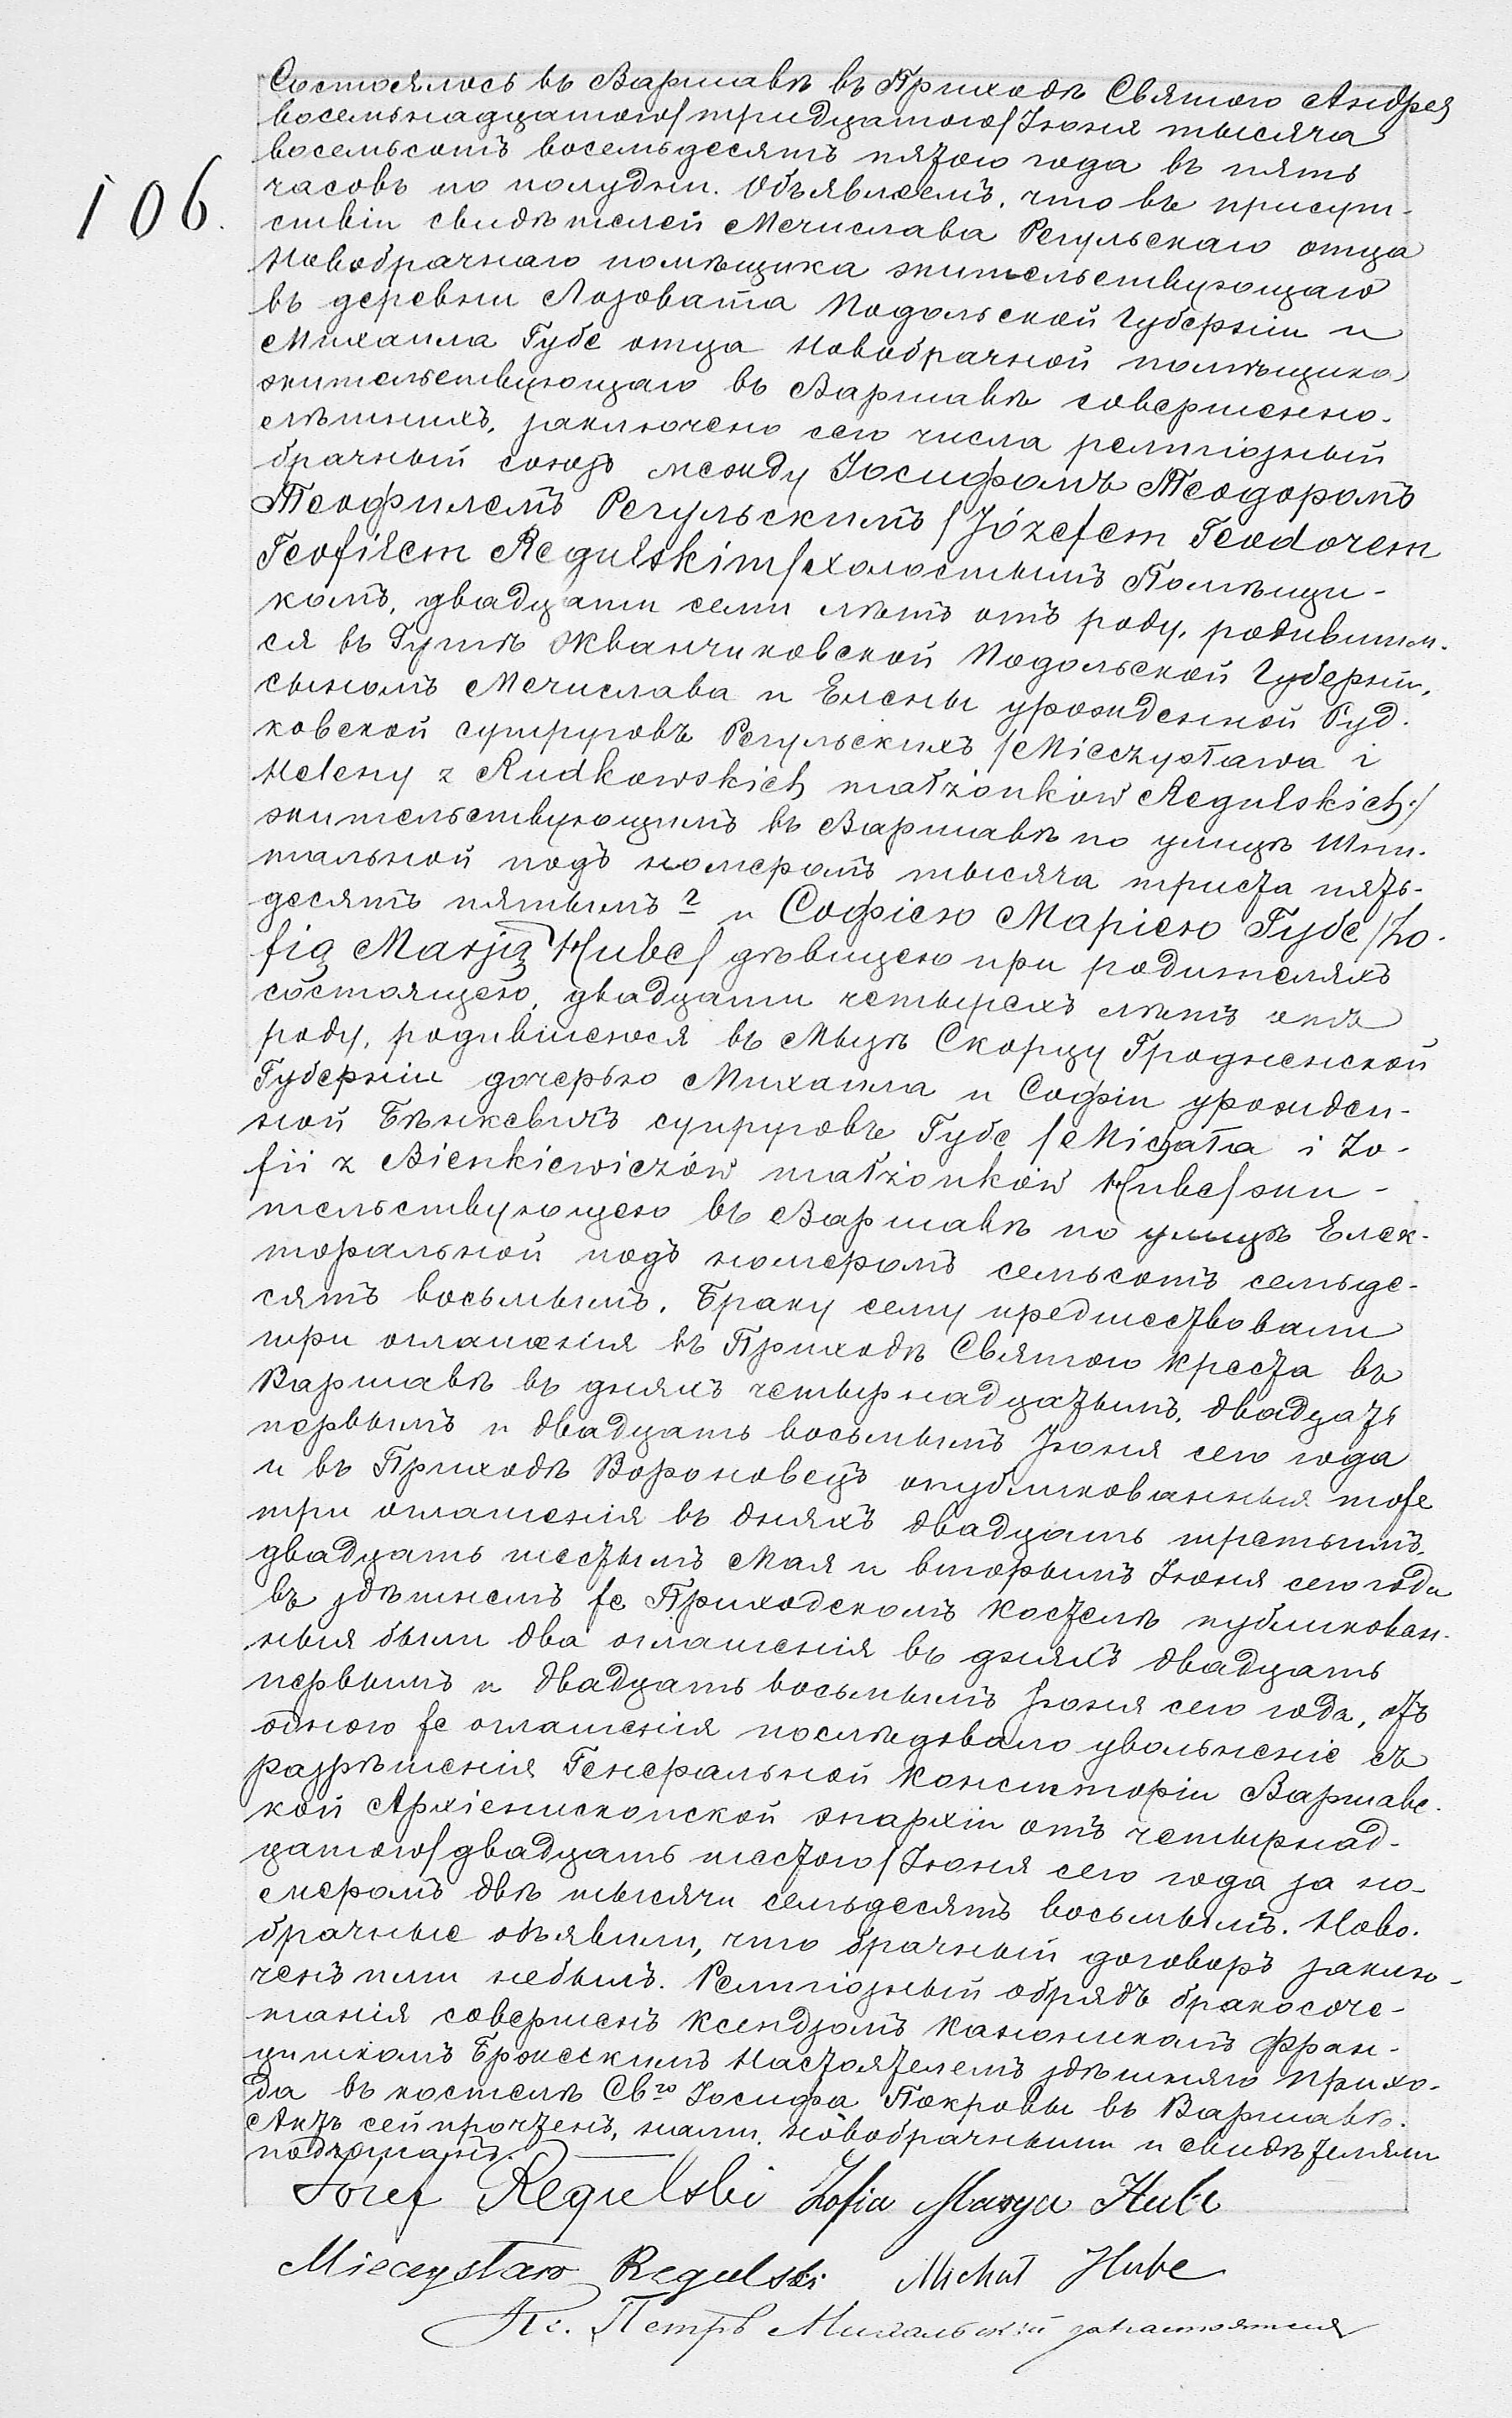 Состоялось въ Варшавѣ въ Приходѣ Святого Андрея
восемьнадцатого/тридцатого/Іюня тысяча
восемьсотъ восемьдесятъ пятого года въ пять
106.
часовъ по полудни. Объявляемъ, что въ присут-
ствіи свидѣтелей Мечислава Регульскаго отца
Новобрачнаго помѣщика жительствующаго
въ деревни Лозовата Подольской Губерніи и
Михаила Губе отца Новобрачной помѣщика
жительствующаго въ Варшавѣ совершенно-
лѣтнихъ, заключено сего числа религіозный
брачный союзъ между Іосифомъ Теодоромъ
Теофилемъ Регульскимъ/Józefem Teodorem
Teofilem Regulskim/холостымъ Помѣщи-
комъ, двадцати семи лѣтъ отъ роду, родившим-
ся въ Гутѣ Жванчиковской Подольской Губерніи,
сыномъ Мечислава и Елены урожденной Руд-
ковской супруговъ Регульскихъ /Mieczysława i
Heleny z Rudkowskich małżonków Regulskich/
жительствующимъ въ Варшавѣ по улицѣ Шпи-
тальной подъ номеромъ тысяча триста пять-
десятъ пятымъ и Софіею Маріею Губе /Zo-
fią Marją Hube/ дѣвицею при родителяхъ
состоящею, двадцати четырехъ лѣтъ отъ
роду, родившеюся въ Скорцу Гродненской
Губерніи дочерью Михаила и Софіи урожден-
ной Бѣнкевичъ супруговъ Губе /Michała i Zo-
fii z Bienkiewiczów małżonków Hube/жи-
тельствующею въ Варшавѣ по улицѣ Елек-
торальной подъ номеромъ семьсотъ семьде-
сятъ восьмымъ. Браку сему предшествовали
три оглашенія въ Приходѣ Святого Креста въ
Варшавѣ въ дняхъ четырнадцатымъ, двадцать
первымъ и двадцать восьмымъ Іюня сего года
и въ Приходѣ Вороновецъ опубликованныя тоже
три оглашенія въ дняхъ двадцать третьимъ,
двадцать шестымъ Мая и вторымъ Іюня сего года
въ здѣшнемъ же Приходскомъ Костелѣ публикован-
ныя были два оглашенія въ дняхъ двадцать
первымъ и двадцать восьмымъ Іюня сего года, отъ
одного же оглашенія послѣдовало увольненіе съ
разрѣшенія Генеральной Консисторіи Варшавс-
кой Архіепископской эпархіи отъ четырнад-
цатого/двадцать шестого/Іюня сего года за но-
меромъ двѣ тысячи семьдесятъ восьмымъ. Ново-
брачные объявили, что брачный договоръ заклю-
ченъ ими небылъ. Религіозный обрядъ бракосоче-
танія совершенъ Ксендзомъ Каноникомъ Фран-
цишкомъ Настоятелемъ здѣшняго Прихо-
да въ костелѣ Свго Іосифа Покровы въ Варшавѣ.
Актъ сей прочтенъ, нами, новобрачными и свидѣтелями
подписанъ.
Józef Regulski Zofia Marya Hube
Mieczysław Regulski Michał Hube
Кс. Петръ